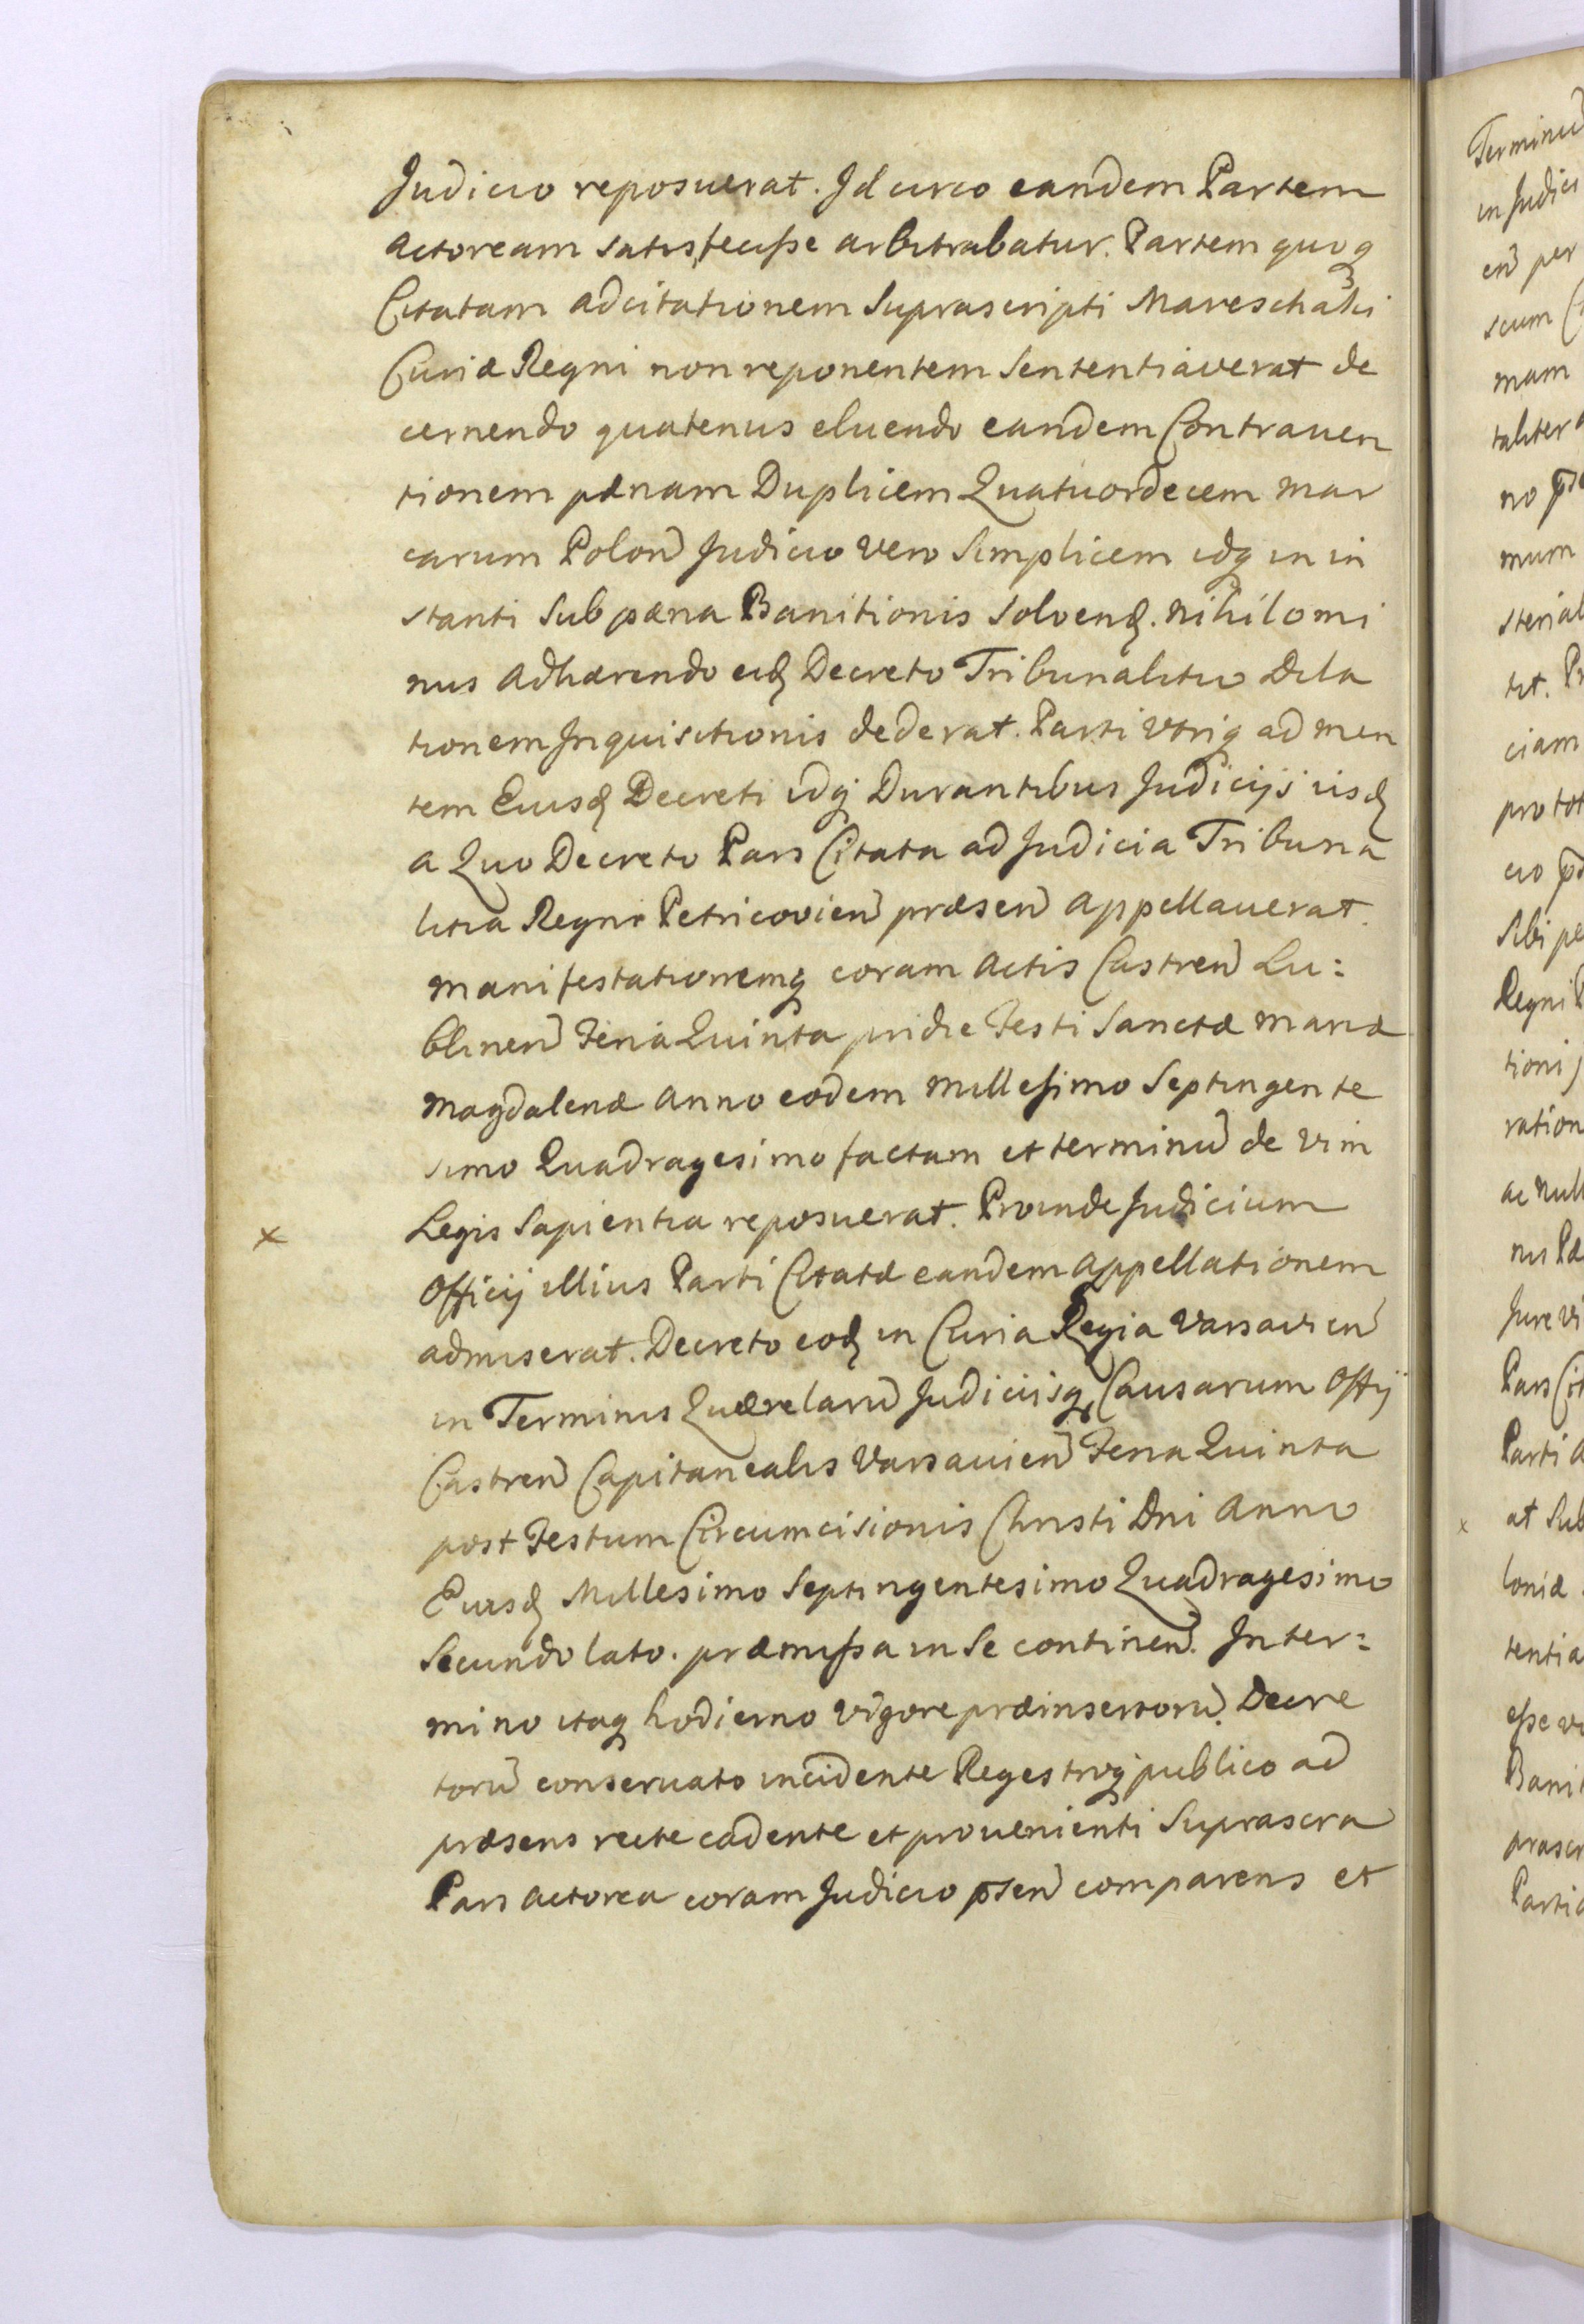 Judicio reposuerat. Idcirco eandem Partem
actoream satisfecisse arbitrabatur. Partem quoq
Citatam ad citationem Suprascripti Mareschalci
Curiæ Regni non reponentem Sententiaverat de
cernendo quatenus eluendo eandem Contraven
tionem pænam Duplicem Quatuordecem mar
carum Polon Judicio vero Simplicem idq in in
stanti Sub pæna Banitionis Solvend. nihilomi
nus adhærendo eid Decreto Tribunalitio Dila
tionem Inquisitionis dederat. Parti utriq ad men
tem Eiusd Decreti idq Durantibus Judicijs iisd
a Quo Decreto Pars Citata ad Judicia Tribuna
litia Regni Petricovien præsen appellauerat.
manifestationemq coram actis Castren Lu=
blinen Feria Quinta pridie Festi Sanctæ mariæ
magdalenæ anno eodem millesimo Septingente
simo Quadragesimo factam et terminu de vim
Legis Sapientia reposuerat. Proinde Judicium
x
Officij illius Parti Citatæ eandem appellationem
admiserat. Decreto eod in Curia Regia Varsavien
in Terminis Quærelaru Judiciisq Causarum Offij
Castren Capitanealis Varsauien Feria Quinta
post Festum Circumcisionis Christi Dni anno
Eiusd Millesimo Septingentesimo Quadragesimo
Secundo lato. præmissa in Se continen. In ter=
mino itaq hodierno vigore præinsertoru. Decre
toru conseruato incidente Regestroq publico ad
præsens recte cadente et provenienti Suprascra
Pars actorea coram Judicio psen comparens et
Terminu
in Judici
en per
scum
mam
taliter
no
mum
sterial
tit.
ciam
pro tot
cio
Sibi pe
Regni
tioni
ration
ac null
nis Pæ
Jure vi
Pars Cit
Parti a
x
at Sub
loniæ
tentia
esse vi
Bani
prascr
Parti